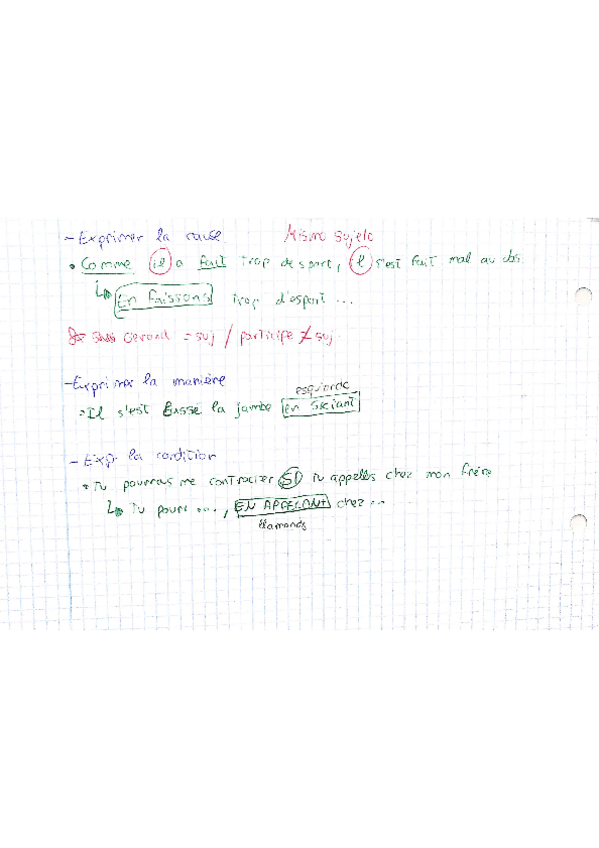 - Exprimer la cause. Mismo sujeto
• Comme il a fait trop de sport, il s'est fait mal au dos
↳ En faissons trop d'esport ...
Gerond = suj / participe ≠ suj.
- Exprimer la manière
esquiande
• Il s'est cassé la jambe en skiant
- Exp la condition
• Tu pourras me contracter SI tu appelles chez mon frère
↳ Tu pours ..., EN APPELANT chez ...
llamando